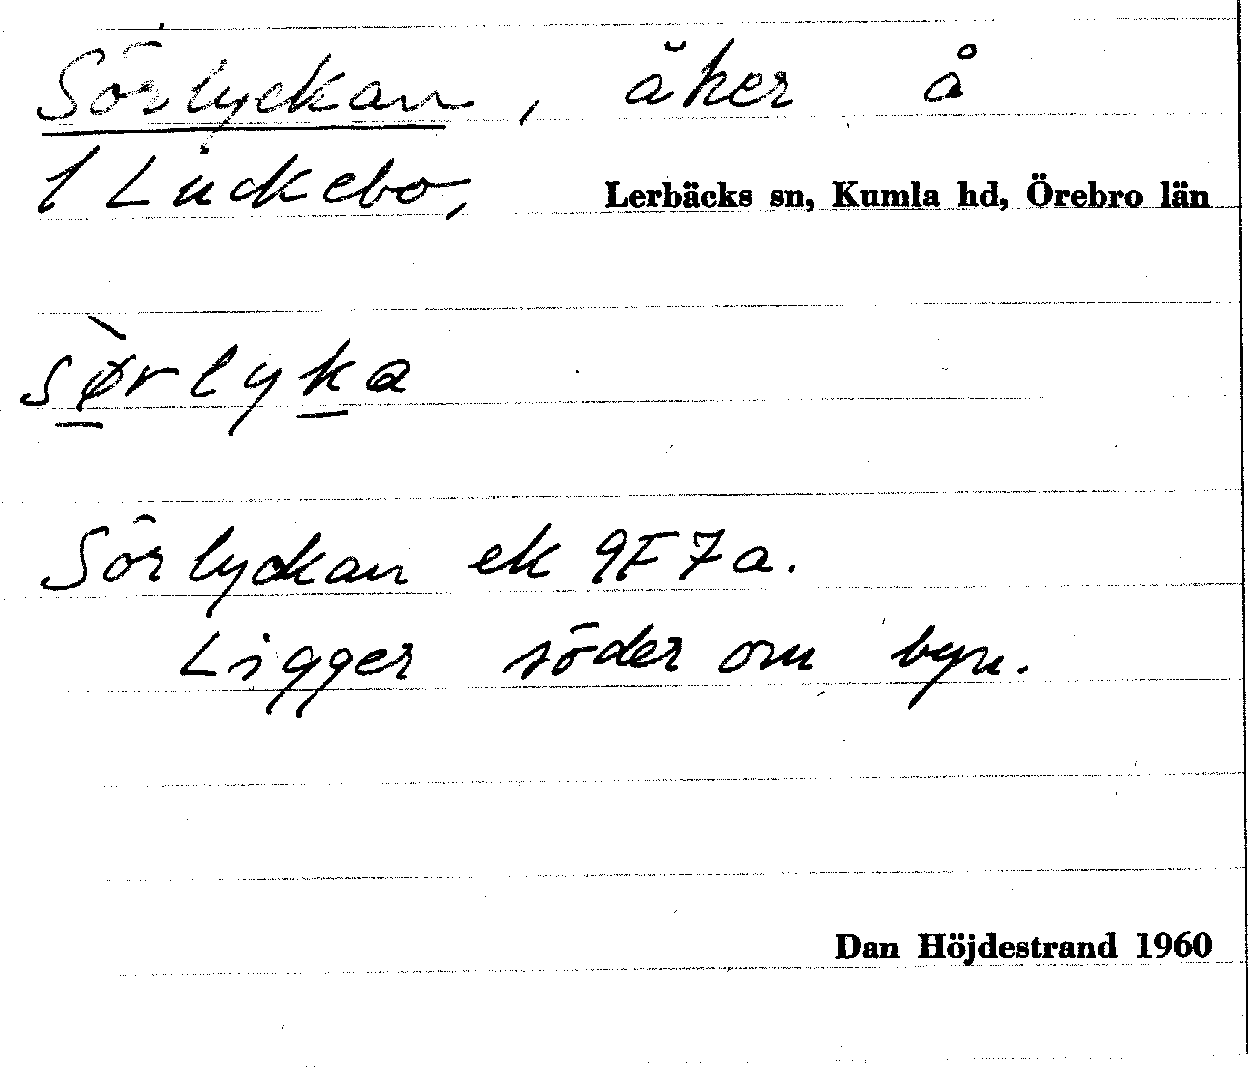 Sörlyckan, åker å
1 Luckebo, Lerbäcks sn, Kumla hd, Örebro län
sø̀rlyka
Sörlyckan ek 9F7a.
Ligger söder om byn.
Dan Höjdestrand 1960